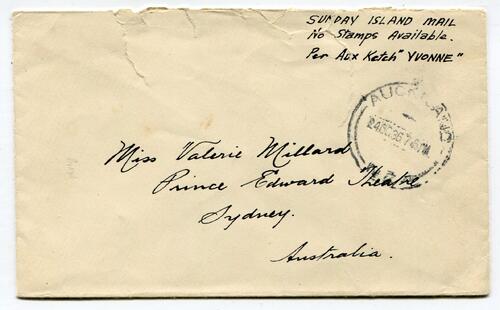 SUNDAY ISLAND MAIL
No Stamps Available.
Per Aux Ketch "YVONNE"
AUCKLAND
Miss Valerie Millard
Prince Edward Theatre
Sydney.
Australia.